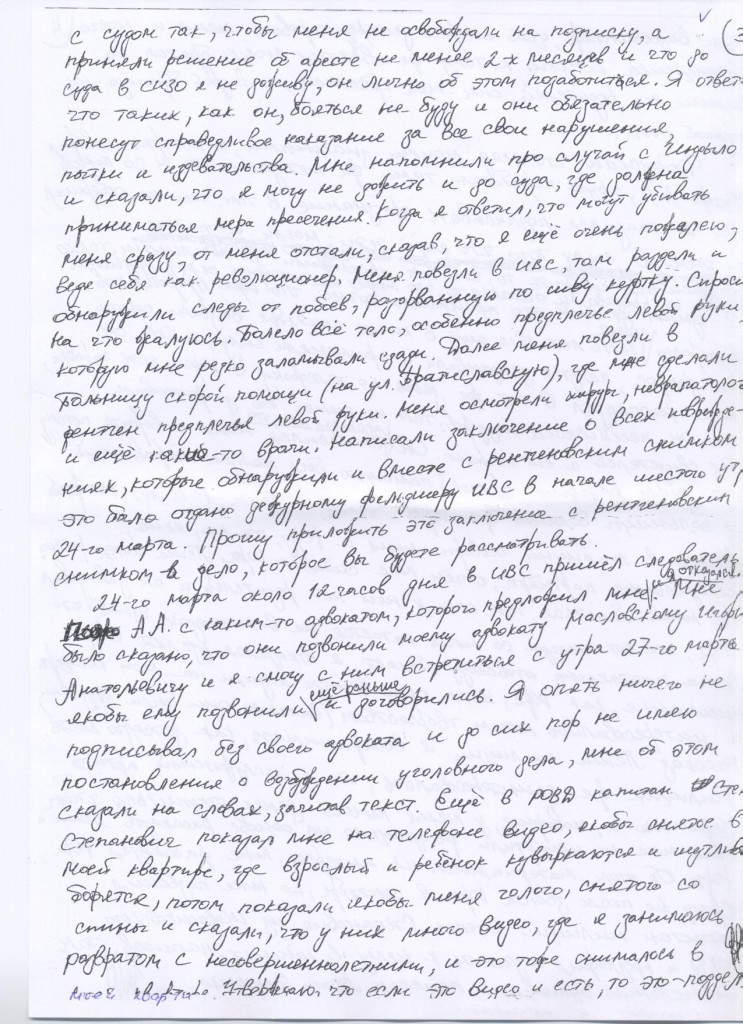 (3
с судом так, чтобы меня не освобождали на подписку, а
приняли решение об аресте не менее 2-х месяцев и что до
суда в СИЗО я не доживу, он лично об этом позаботиться. Я ответ
что таких, как он, бояться не буду и они обязательно
понесут справедливое наказание за все свои нарушения,
пытки и издевательства. Мне напомнили про случай с Индыло
и сказали, что я могу не дожить и до суда, где должна
приниматься мера пресечения. Когда я ответил, что могут убивать
меня сразу, от меня отстали, сказав, что я ещё очень пожалею,
веде себя как революционер. Меня повезли в ИВС, там раздели и
обнаружили следы от побоев, разорванную по шву куртку. Спроси
на что жалуюсь. Болело всё тело, особенно предплечье левой руки
которую мне резко заламывали сзади. Далее меня повезли в
Больницу скорой помощи (на ул. Братиславскую), где мне сделали
рентген предплечья левой руки. Меня осмотрели хирург, невропатолог
и ещё какие-то врачи. Написали заключение о всех поврежде-
ниях, которые обнаружили и вместе с рентгеновским снимком
это было отдано дежурному фельдшеру ИВС в начале шестого утр
24-го марта. Прошу приложить это заключение с рентгеновским
снимком в дело, которое вы будете рассматривать.
24-го марта около 12 часов дня в ИВС пришёл следователь
А.А. с каким-то адвокатом, которого предложил мне. Я отказался. Мне
было сказано, что они позвонили моему адвокату Масловскому Игорю
Анатольевичу и я смогу с ним встретиться с утра 27-го марта
якобы ему позвонили ещё раньше и договорились. Я опять ничего не
подписывал без своего адвоката и до сих пор не имею
постановления о возбуждении уголовного дела, мне об этом
сказали на словах, зачитав текст. Ещё в РОВД капитан Степ
Степанович показал мне на телефоне видео, якобы снятое в
моей квартире, где взрослый и ребёнок кувыркаются и шутлив
борятся, потом показали якобы меня голого, снятого со
спины и сказали, что у них много видео, где я занимаюсь
развратом с несовершеннолетними, и это тоже снималось в
моей квартире. Утверждаю, что если это видео и есть, то это-поддел